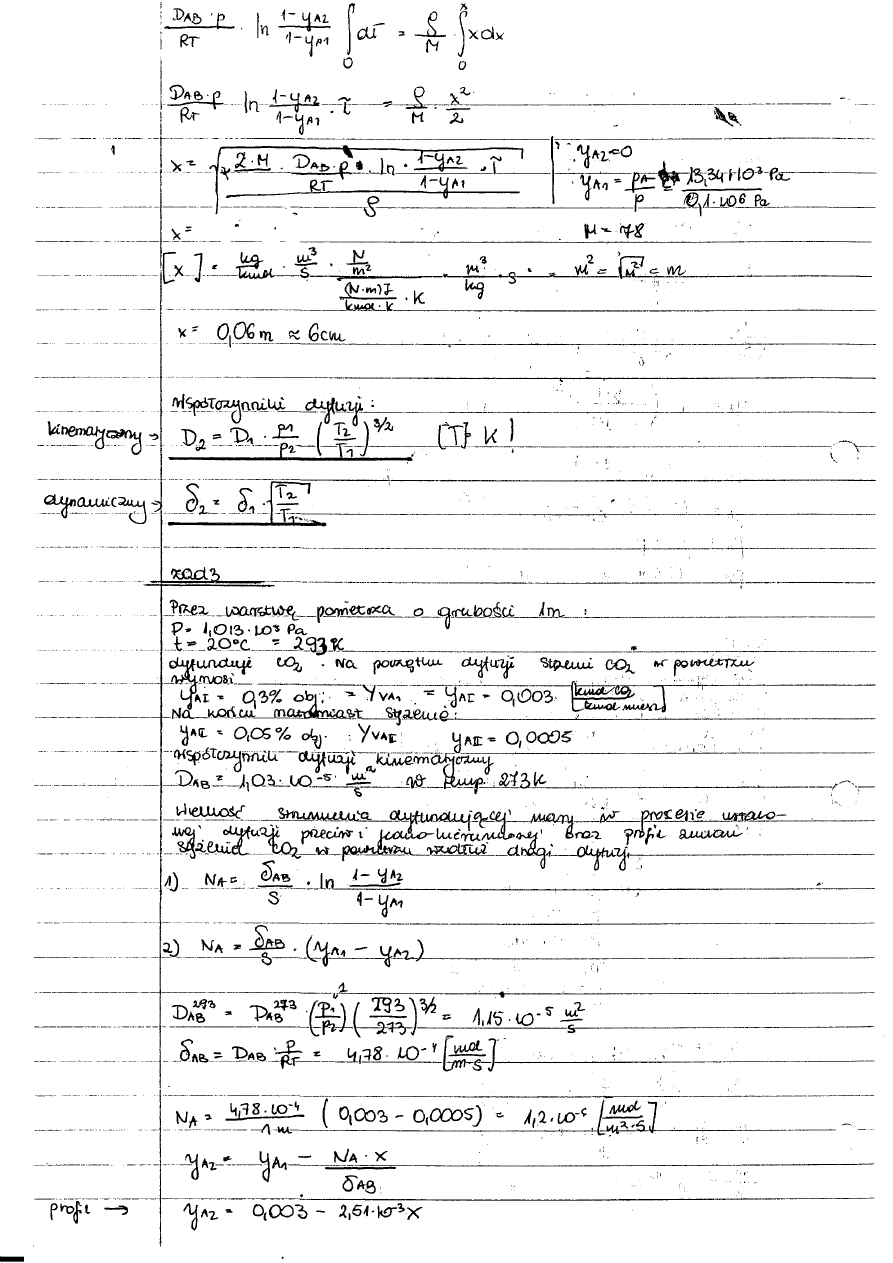 D_AB·p / RT · ln (1-y_A2 / 1-y_A1) ∫₀ dτ = ρ/M · ∫₀ˣ xdx
D_AB·p / RT ln (1-y_A2 / 1-y_A1) · τ = ρ/M · x²/2
x = √(2·M · D_AB·p / RT · ln · (1-y_A2 / 1-y_A1) · τ / ρ)
y_A2=0
y_A1 = p_A / p = 13,34·10³ Pa / 0,1·10⁶ Pa
x=
M = 78
[x] = kg/kmol · m³/s · (N/m²) / ((N·m)J / kmol·K · K) · m³/kg · s = m² = √m² = m
x = 0,06m ≈ 6cm
Współczynniki dyfuzji:
kinematyczny → D₂ = D₁ · p1/p2 (T₂/T₁)^3/2 [T]= K !
dynamiczny → δ₂ = δ₁ · √(T₂/T₁)
zad3
Przez warstwę powietrza o grubości 1m :
P= 1,013·10⁵ Pa
t = 20°C = 293K
dyfunduje CO₂. Na początku dyfuzji stężenie CO₂ w powietrzu
wynosi
y_AI = 0,3% obj. = Y_VA1 = y_AI = 0,003 [kmol CO₂ / kmol miesz]
Na końcu natomiast stężenie:
y_AII = 0,05% obj. Y_VAII y_AII = 0,0005
Współczynnik dyfuzji kinematyczny
D_AB = 1,03·10⁻⁵ · m²/s w temp. 273K
Wielkość strumienia dyfundującej masy w procesie ustalo-
nej dyfuzji przeciw i jedno-kierunkowej oraz profil zmian
stężenia CO₂ w powietrzu wzdłuż drogi dyfuzji
1) N_A = δ_AB / s · ln (1-y_A2 / 1-y_A1)
2) N_A = δ_AB / s · (y_A1 - y_A2)
D_AB²⁹³ = D_AB²⁷³ (p₁/p₂)¹ (293/273)^3/2 = 1,15·10⁻⁵ m²/s
δ_AB = D_AB · p/RT = 4,78·10⁻⁴ [mol / m·s]
N_A = 4,78·10⁻⁴ / 1m (0,003 - 0,0005) = 1,2·10⁻⁶ [mol / m²·s]
y_A2 = y_A1 - N_A·x / δ_AB
profil → y_A2 = 0,003 - 2,51·10⁻³x